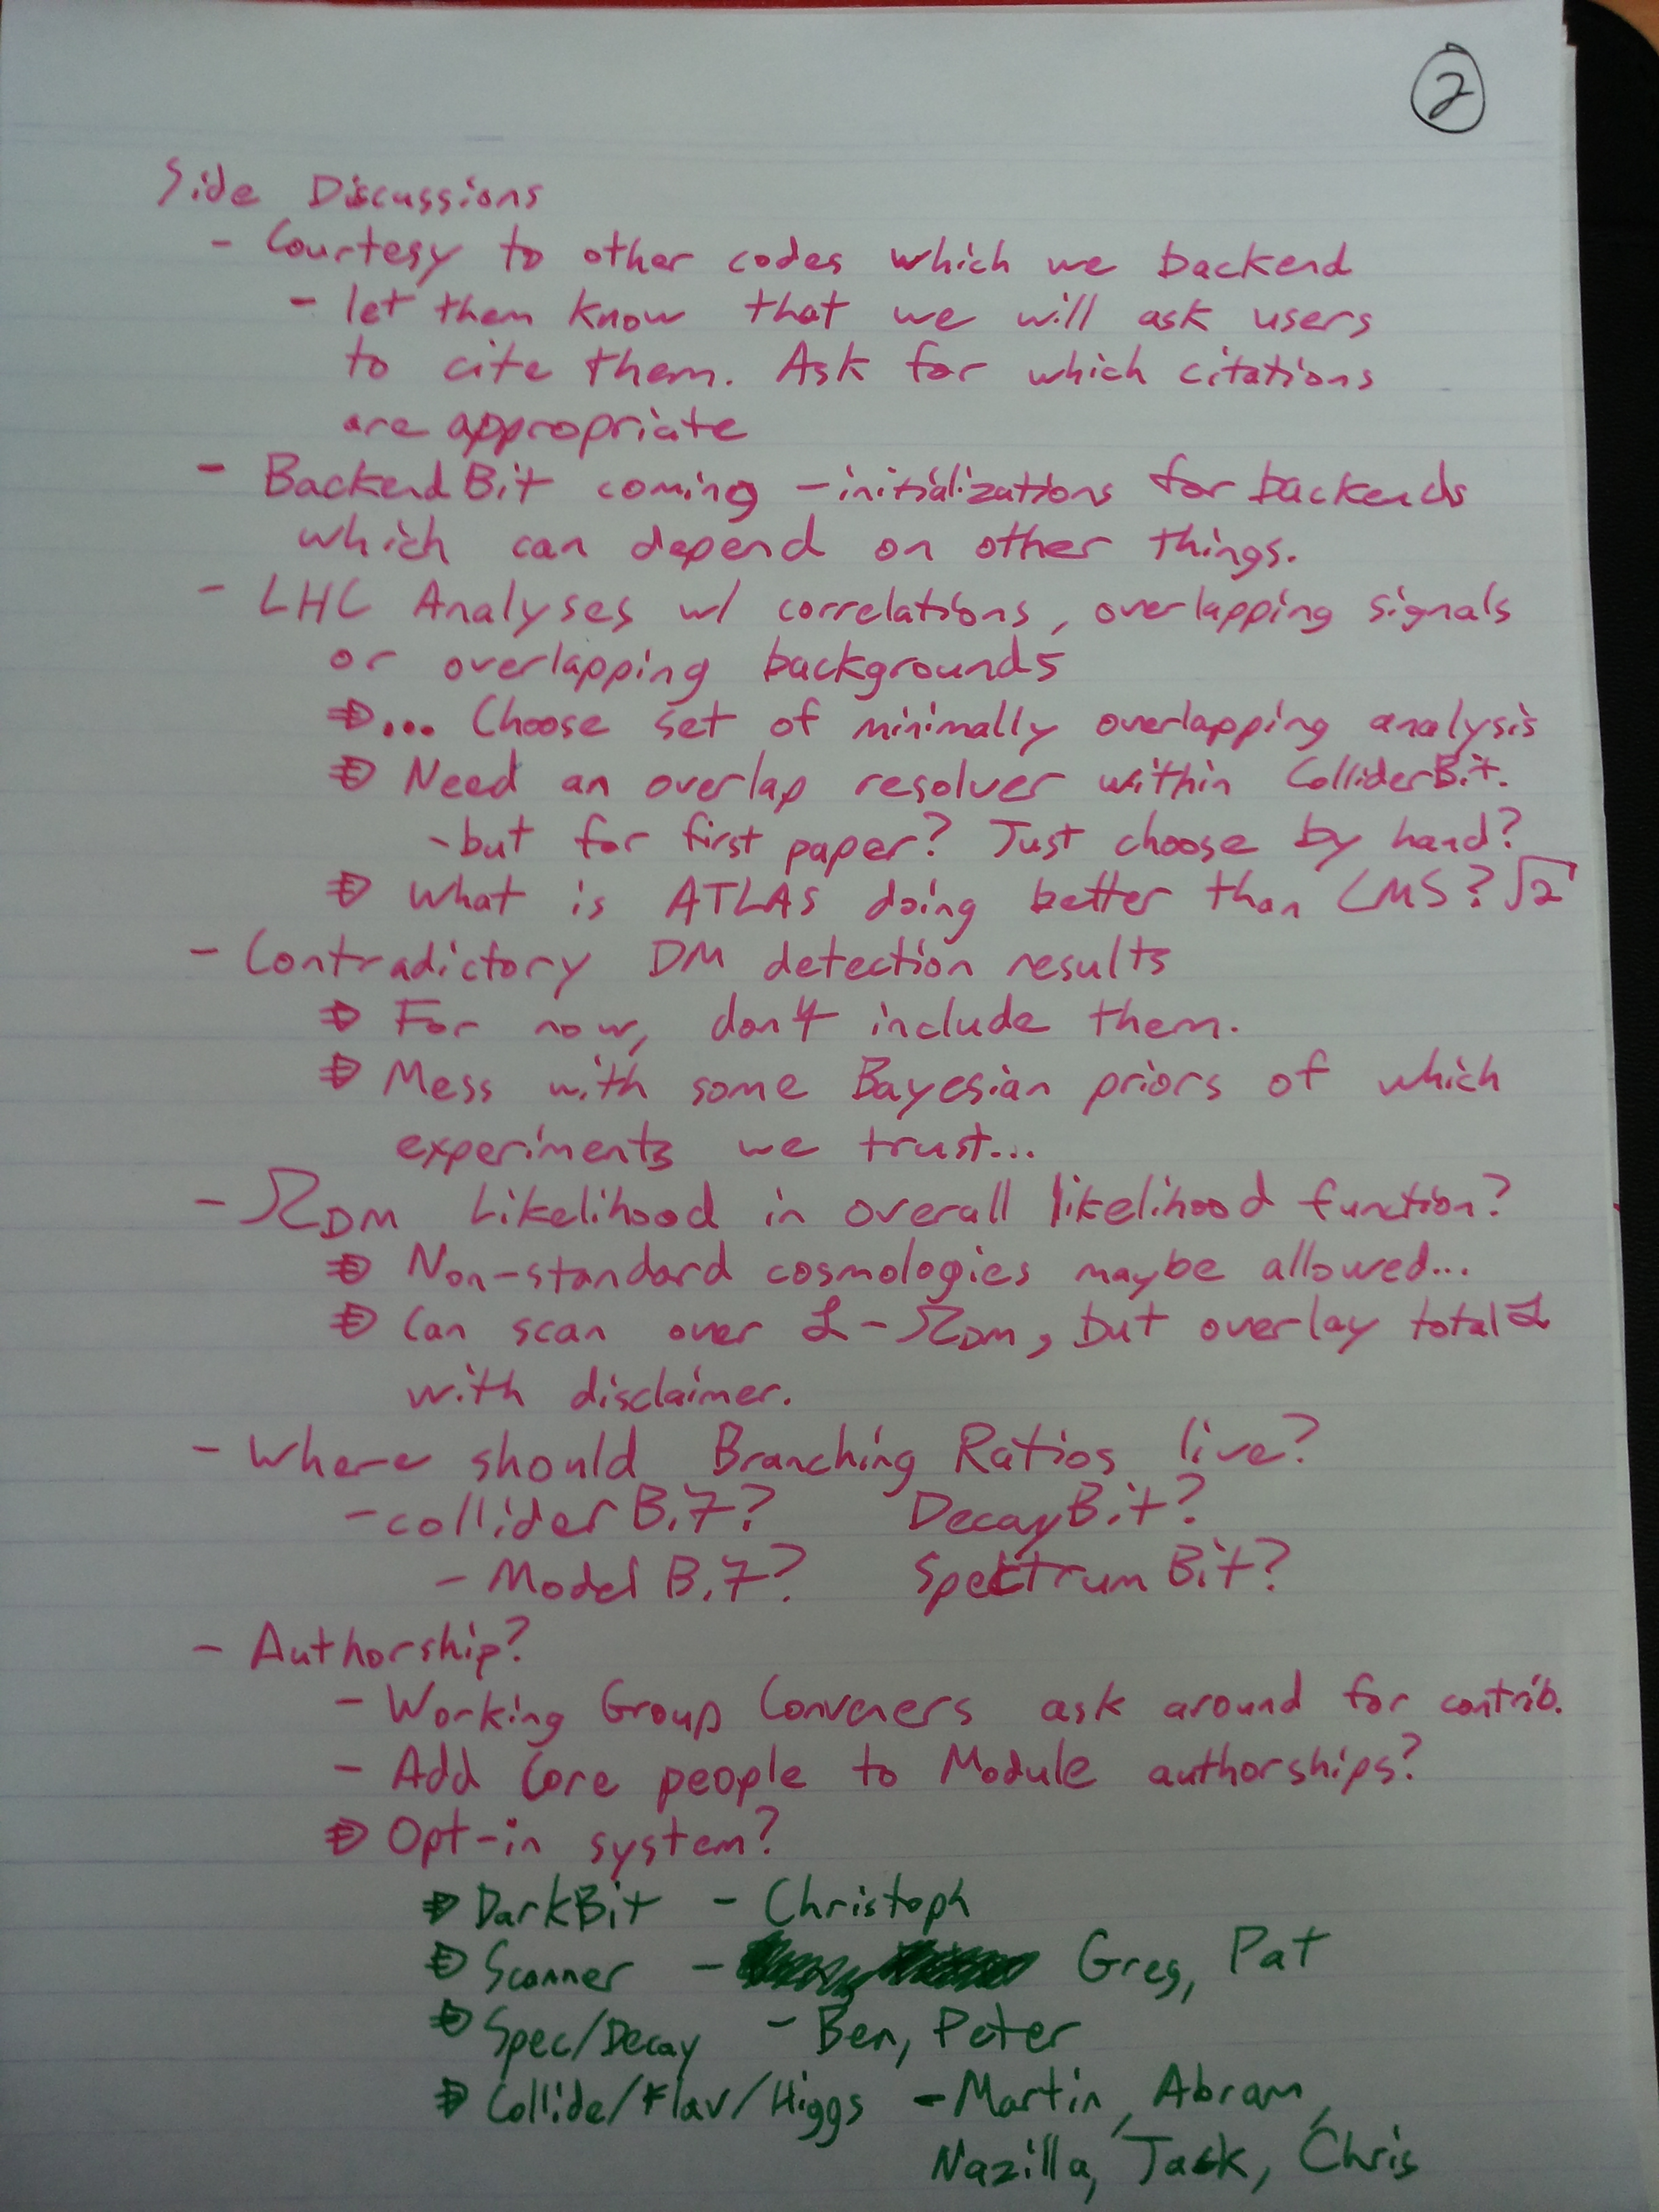 2
Side Discussions
- Courtesy to other codes which we backend
- let them know that we will ask users
to cite them. Ask for which citations
are appropriate
- BackendBit coming - initializations for backends
which can depend on other things.
- LHC Analyses w/ correlations, overlapping signals
or overlapping backgrounds
⇒... Choose set of minimally overlapping analysis
⇒ Need an overlap resolver within ColliderBit.
- but for first paper? Just choose by hand?
⇒ What is ATLAS doing better than CMS? √2
- Contradictory DM detection results
⇒ For now, don't include them.
⇒ Mess with some Bayesian priors of which
experiments we trust...
- Ω_DM Likelihood in overall likelihood function?
⇒ Non-standard cosmologies maybe allowed...
⇒ Can scan over ℒ - Ω_DM, but overlay total ℒ
with disclaimer.
- Where should Branching Ratios live?
- colliderBit? DecayBit?
- ModelBit? SpectrumBit?
- Authorship?
- Working Group Conveners ask around for contrib.
- Add Core people to Module authorships?
⇒ Opt-in system?
⇒ DarkBit - Christoph
⇒ Scanner - Greg, Pat
⇒ Spec/Decay - Ben, Peter
⇒ Collide/Flav/Higgs - Martin, Abram,
Nazilla, Jack, Chris